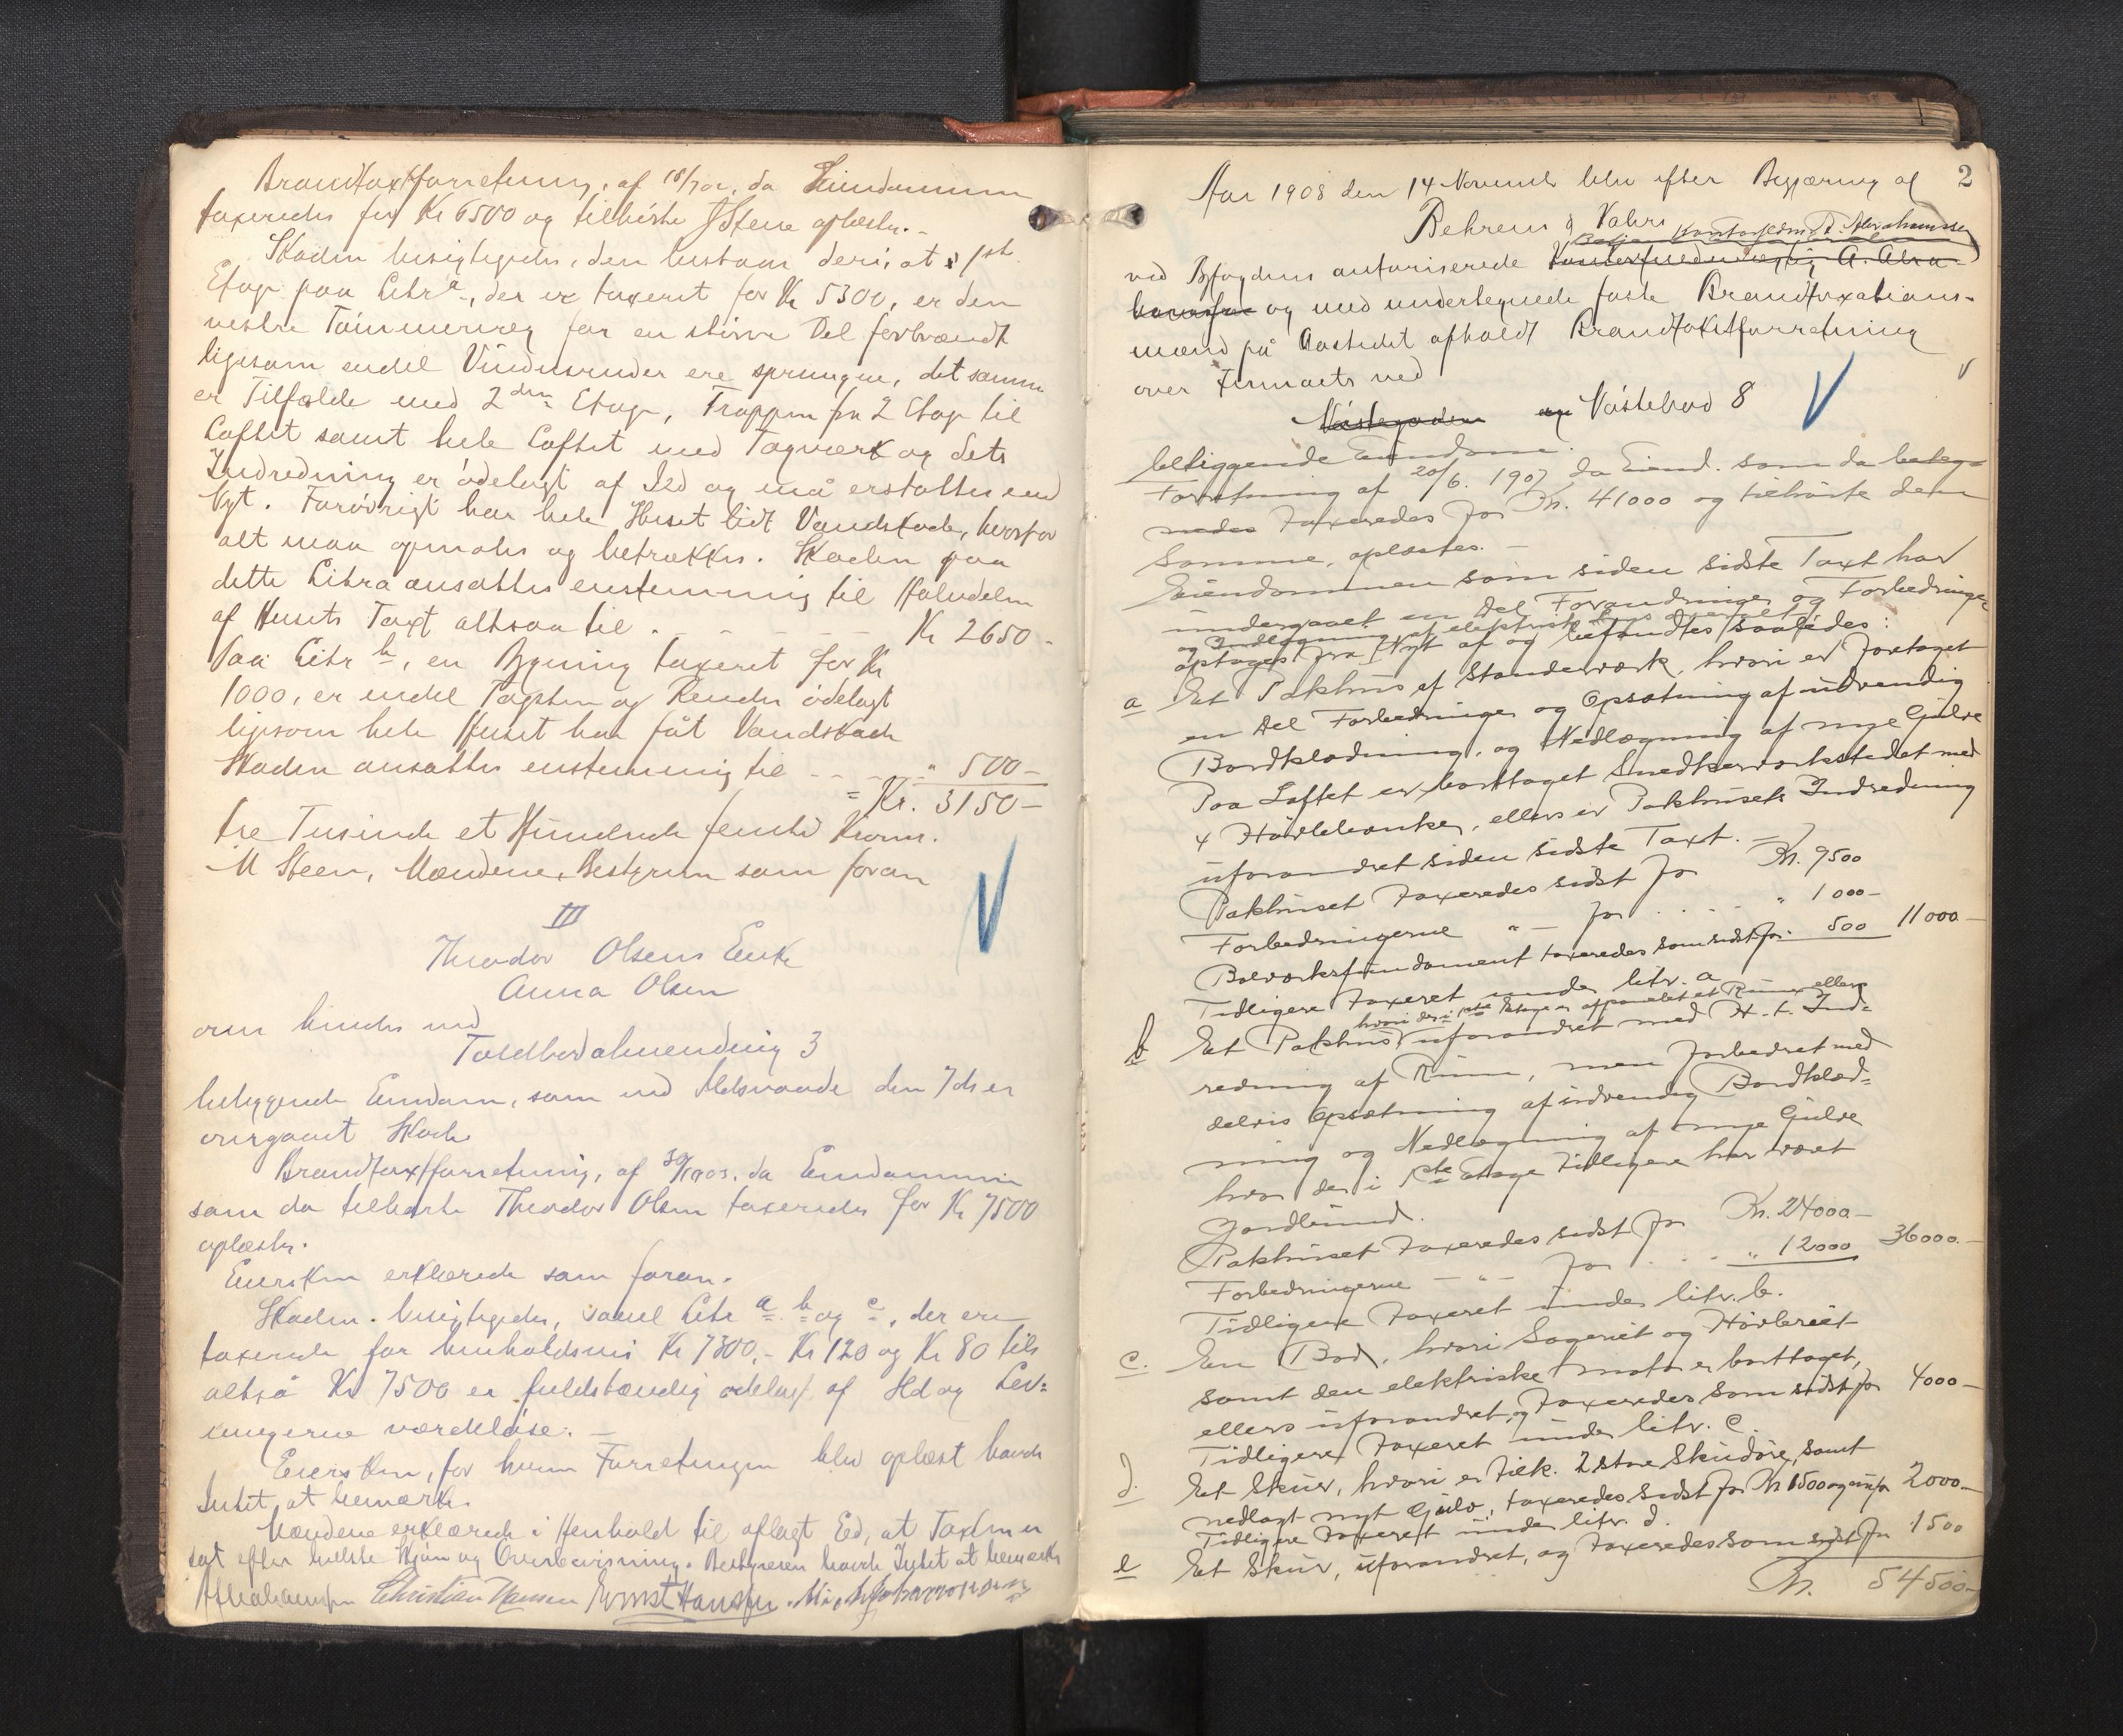 Brandtaxtforretning, af 18/7 02, da Eiendommen
taxeredes for Kr 6500 og tilhørte J Steen oplæstes.-
Skaden besigtigedes, den bestaar deri, at i 1ste
Etage paa Litr a, der er taxeret for Kr 5300, er den
vestre Tømmervæg for en större Del forbrændt
ligesom endel Vinduesruder ere sprungne, det samme
er Tilfælde med 2den Etage, Trappen fra 2 Etage til
Loftet samt hele Loftet med Tagværk og dets
Indredning er ödelagt af Ild og må erstattes med
Nyt. Forövrigt har hele Huset lidt Vandskade, hvorfor
alt maa opmales og betrækkes. Skaden paa
dette Litra ansattes enstemmig til Halvdelen
af Husets Taxt altsaa til . - - - - - Kr 2650 -
Paa Litr b, en Bygning taxeret for Kr
1000, er endel Tagsten og Render ödelagt
ligesom hele Huset har fåt Vandskade
Skaden ansattes enstemmig til - - - - " 500 -
= Kr. 3150 -
tre Tusinde et Hundrede femti Kroner.
M Steen, Mændene, Bestyreren som foran
III
Theodor Olsens Enke
Anna Olsen
over hendes ved
Toldbodalmending 3
beliggende Eiendom, som ved Ildsvaade den 7ds er
overgaaet Skade
Brandtaxtforretning, af 30/ 1903, da Eiendommen
som da tilhørte Theodor Olsen taxeredes for Kr 7500
oplæstes.
Eiersken erklærede som foran.
Skaden besigtigedes, saavel Litr a b og c, der ere
taxerede for henholdsvis Kr 7300,- Kr 120 og Kr 80 tils
altså Kr 7500 er fuldstændig ödelagt af Ild og Lev=
ningerne værdiløse. -
Eiersken, for hvem Forretningen blev oplæst havde
Intet at bemærke.
Mændene erklærede i Henhold til aflagt Ed, at Taxten er
sat efter bedste Skjön og Overbevisning. Bestyreren havde Intet at bemærke
AAbrahamsen Christian Hansen Ernst Hansen.
2
Aar 1908 den 14 November blev efter Begjæring af
Behrens & Vahrs
Kontorfuldm. A. Abrahamsen
ved Byfogdens autoriserede Kontorfuldmægtig A. Abra-
hamsen og med undertegnede faste Brandtaxations-
mænd på Aastedet afholdt Brandtaxtforretning
over Firmaets ved
Nöstegaden og Nöstebod 8
beliggende Eiendom.
Forretning af 20/6. 1907, da Eiend. som da beteg-
nedes taxeredes for Kr. 41000 og tilhörte den
Samme, oplæstes. -
Eiendommen som siden sidste Taxt har
undergaaet en Del Forandringer og Forbedringer
og Indlægning af elektrisk Lys
optages fra Nyt af og befandtes saaledes:
a Et Pakhus af Standerværk, hvori er foretaget
en Del Forbedringer og Opsætning af udvendig
Bordklædning, og Nedlægning af nye Gulve
Paa Loftet er borttaget Snedkerværkstedet med
4 Hövlebænker, ellers er Pakhusets Indredning
uforandret siden sidste Taxt. -
Pakhuset taxeredes sidst for Kr. 9500
Forbedringerne " - for . . - - " 1000 -
Bolværksfundament taxeredes som sidst for 500 11000 -
Tidligere taxeret under litr. a
hvori der i 1ste Etage er afpanelet et Rum, ellers
b Et Pakhus uforandret med H. t. Ind-
redning af Rum, men forbedret med
delvis Opsætning af udvendig Bordklæd=
ning og Nedlægning af nye Gulve
hvor der i 1ste Etage tidligere har været
Jordbund.
Pakhuset taxeredes sidst for Kr. 24000 -
Forbedringerne - " - for . . . " 12000 36000. -
Tidligere taxeret under litr. b.
c. En Bod, hvori Sageriet og Hövleriet
samt den elektriske motor er borttaget,
ellers uforandret, og taxeredes som sidst for 4000 -
Tidligere taxeret under litr. c.
d. Et Skur, hvori er tilk. 2 store Skudöre, samt
nedlagt nyt Gulv, taxeredes sidst for Kr 1500 og nu for 2000 -
Tidligere taxeret under litr. d.
e Et Skur, uforandret, og taxeredes som sidst for 1500
Kr. 54500 -